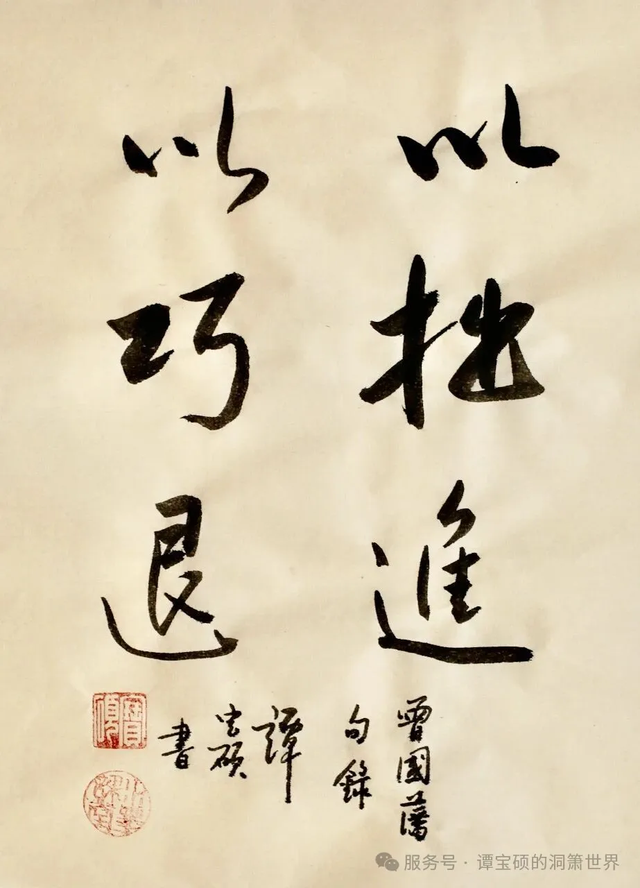 以拙進
以巧退
曾國藩
句錄
譚
宝硕
書
服务号 · 谭宝硕的洞箫世界